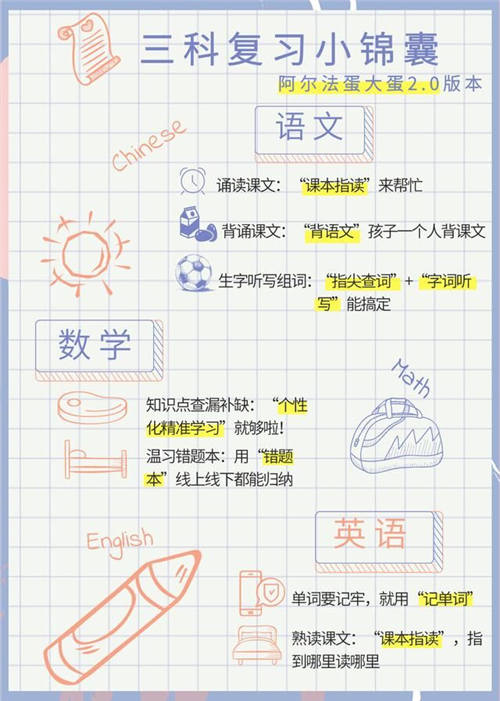 三科复习小锦囊
阿尔法蛋大蛋2.0版本
语文
Chinese
诵读课文：“课本指读”来帮忙
背诵课文：“背语文”孩子一个人背课文
生字听写组词：“指尖查词”+“字词听
写”能搞定
数学
Math
知识点查漏补缺：“个性
化精准学习”就够啦！
温习错题本：用“错题
本”线上线下都能归纳
英语
English
单词要记牢，就用“记单词”
熟读课文：“课本指读”，指
到哪里读哪里